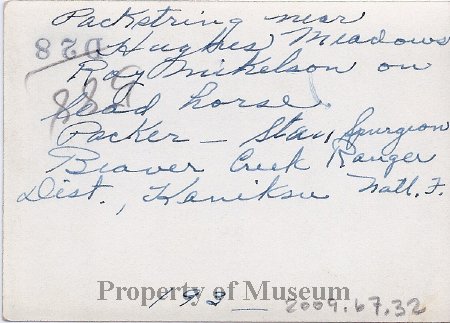 Packstring near
Hughes Meadows
Roy Mikelson on
lead horse.
Packer – Stan Spurgeon
Beaver Creek Ranger
Dist., Kaniksu Natl. F.
D28
193_
2009.67.32
Property of Museum